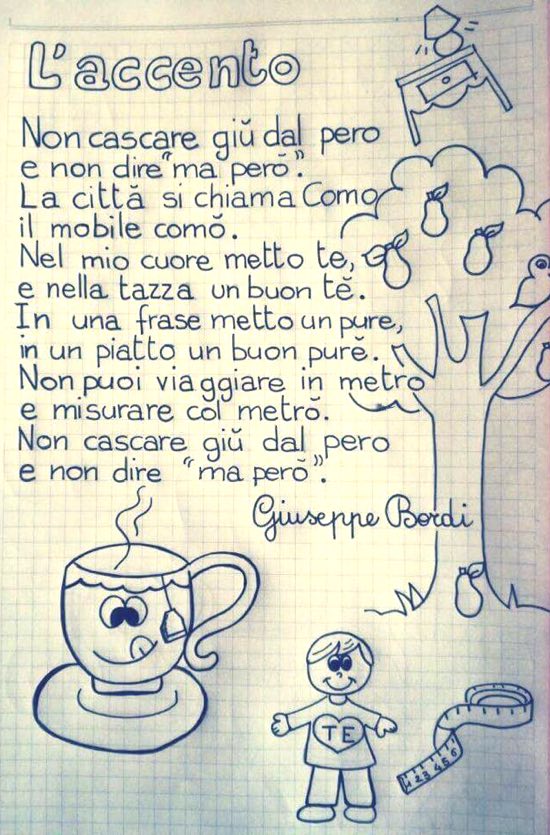 L'accento
Non cascare giù dal pero
e non dire "ma però".
La città si chiama Como
il mobile comò.
Nel mio cuore metto te,
e nella tazza un buon tè.
In una frase metto un pure,
in un piatto un buon purè.
Non puoi viaggiare in metro
e misurare col metrò.
Non cascare giù dal pero
e non dire "ma però".
Giuseppe Bordi
TE
1 2 3 4 5 6